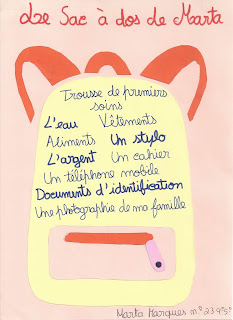 Le Sac à dos de Marta
Trousse de premiers
soins
L'eau Vêtements
Aliments Un stylo
L'argent Un cahier
Un téléphone mobile
Documents d'identification
Une photographie de ma famille
Marta Marques nº 23 9º